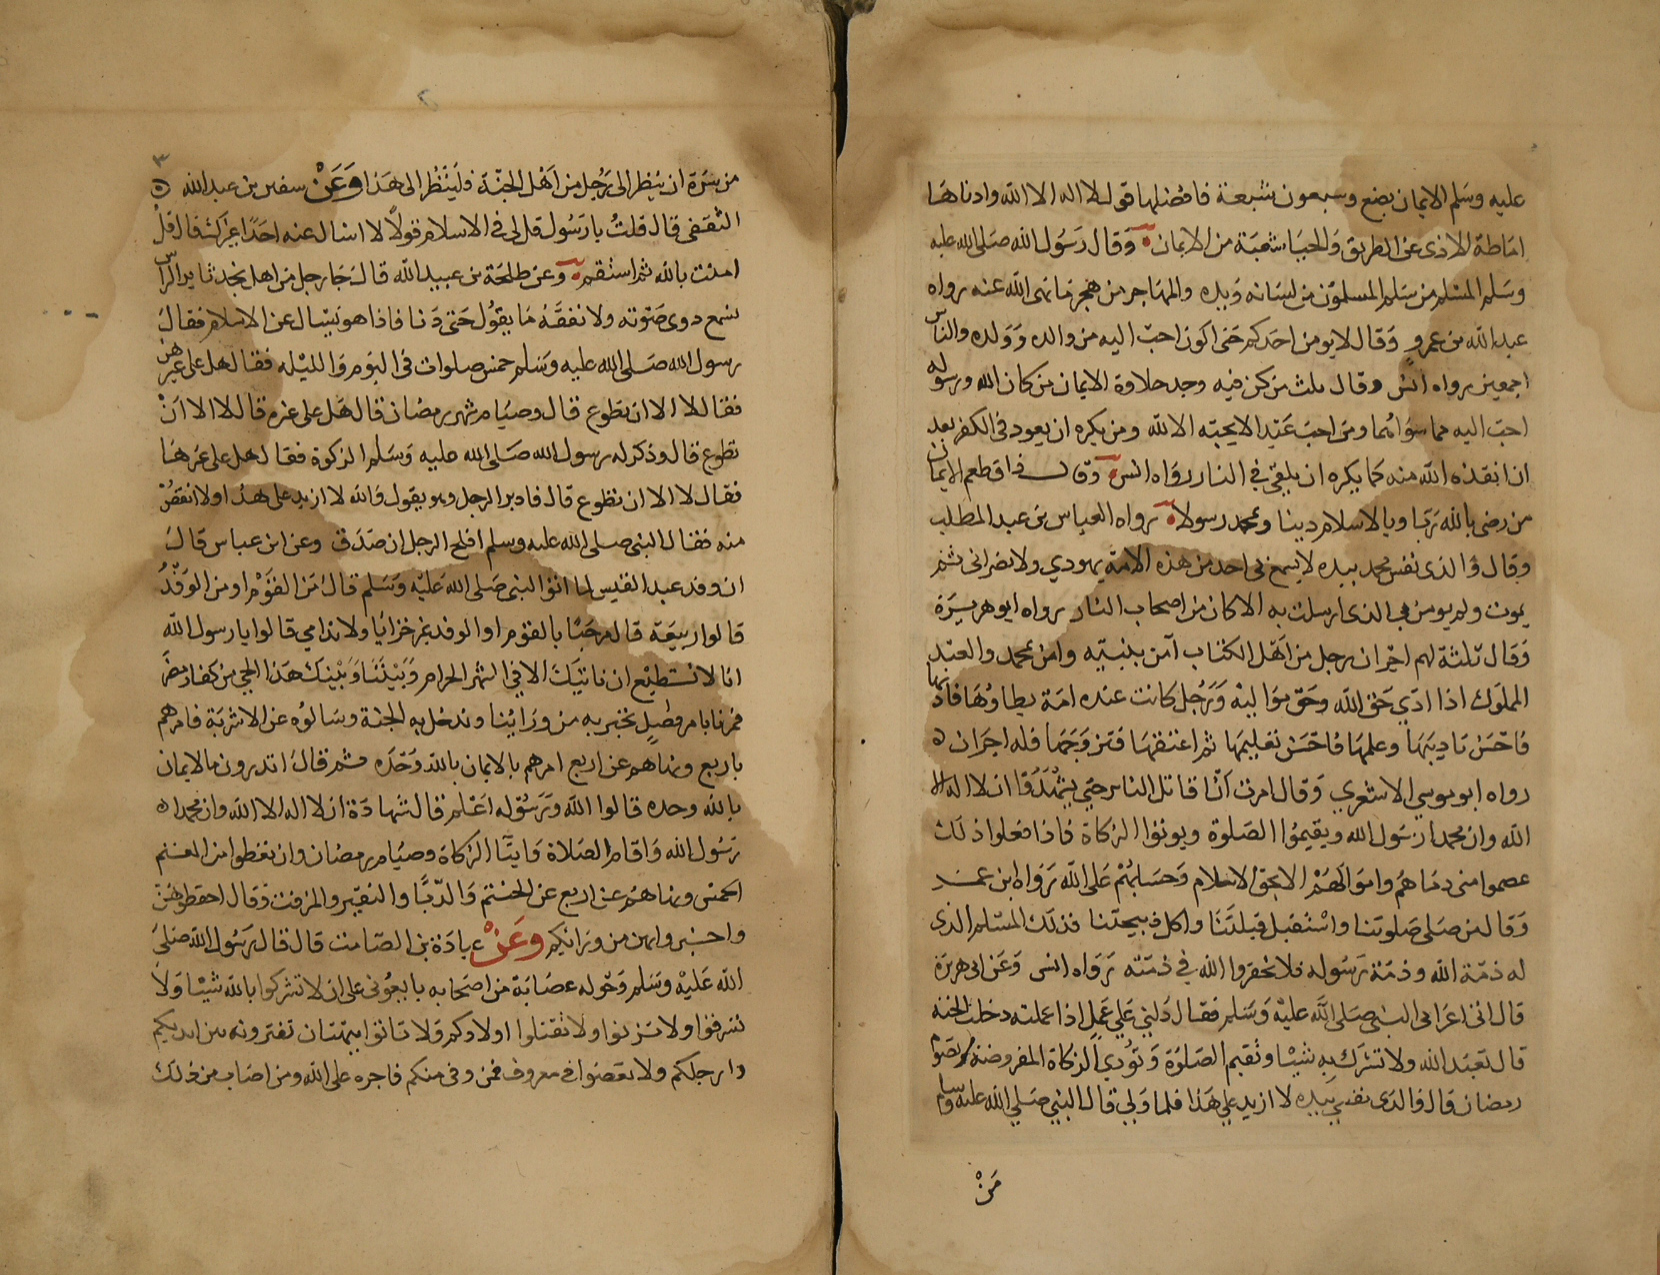 عليه وسلم الايمان بضع وسبعون شعبة فافضلها قول لا اله الا الله وادناها
اماطة الاذى عن الطريق والحيا شعبة من الايمان وقال رسول الله صلى الله عليه
وسلم المسلم من سلم المسلمون من لسانه ويده والمهاجر من هجر ما نهى الله عنه رواه
عبد الله بن عمرو وقال لا يومن احدكم حتى اكون احب اليه من والده وولده والناس
اجمعين رواه انس وقال ثلث من كن فيه وجد حلاوة الايمان من كان الله ورسوله
احب اليه مما سواهما ومن احب عبدا لا يحبه الا لله ومن يكره ان يعود في الكفر بعد
ان انقذه الله منه كما يكره ان يلقى في النار رواه انس وقال ذاق طعم الايمان
من رضى بالله ربا وبالاسلام دينا وبمحمد رسولا رواه العباس بن عبد المطلب
وقال والذى نفس محمد بيده لا يسمع بى احد من هذه الامة يهودي ولا نصرانى ثم
يموت ولم يومن بالذى ارسلت به الا كان من اصحاب النار رواه ابو هريرة
وقال ثلثة لهم اجران رجل من اهل الكتاب آمن بنبيه وامن بمحمد والعبد
المملوك اذا ادي حق الله وحق مواليه ورجل كانت عنده امة يطاوها فادبها
فاحسن تاديبها وعلمها فاحسن تعليمها ثم اعتقها فتزوجها فله اجران ه
رواه ابو موسي الاشعري وقال امرت ان اقاتل الناس حتي يشهدوا ان لا اله الا
الله وان محمدا رسول الله ويقيموا الصلوة ويوتوا الزكاة فاذا فعلوا ذلك
عصموا منى دماهم واموالهم الا بحق الاسلام وحسابهم على الله رواه ابن عمر
وقال من صلى صلوتنا واستقبل قبلتنا واكل ذبيحتنا فذلك المسلم الذى
له ذمة الله وذمة رسوله فلا تخفروا الله في ذمته رواه انس وعن ابى هريرة
قال اتى اعرابى النبى صلى الله عليه وسلم فقال دلني علي عمل اذا عملته دخلت الجنة
قال تعبد الله ولا تشرك به شيا وتقيم الصلوة وتؤدي الزكاة المفروضة وتصوم
رمضان قال والذى نفسي بيده لا ازيد علي هذا فلما ولي قال النبي صلي الله عليه وسلم
من
٣
من سره ان ينظر الى رجل من اهل الجنة فلينظر الى هذا وعن سفين بن عبد الله ه
الثقفى قال قلت يا رسول قل لى في الاسلام قولا لا اسال عنه احدا غيرك فقال قل
امنت بالله ثم استقم وعن طلحة بن عبيد الله قال جا رجل من اهل نجد ثاير الراس
نسمع دوى صوته ولا نفقه ما يقول حتى دنا فاذا هو يسال عن الاسلام فقال
رسول الله صلى الله عليه وسلم خمس صلوات في اليوم والليله فقال هل على غيرهن
فقال لا الا ان تطوع قال وصيام شهر رمضان قال هل على غيره قال لا الا ان
تطوع قال وذكر له رسول الله صلى الله عليه وسلم الزكوة فقال هل على غيرها
فقال لا الا ان تطوع قال فادبر الرجل وهو يقول والله لا ازيد على هذا ولا انقص
منه فقال النبى صلى الله عليه وسلم افلح الرجل ان صدق وعن ابن عباس قال
ان وفد عبد القيس لما اتوا النبى صلى الله عليه وسلم قال من القوم او من الوفد
قالوا ربيعة قال مرحبا بالقوم او الوفد غير خزايا ولا ندامي قالوا يا رسول الله
انا لا نستطيع ان ناتيك الا في الشهر الحرام وبيننا وبينك هذا الحي من كفار مضر
فمرنا بامر فصل نخبر به من وراينا وندخل به الجنة وسالوه عن الاشربة فامرهم
باربع ونهاهم عن اربع امرهم بالايمان بالله وحده ثم قال اتدرون ما الايمان
بالله وحده قالوا الله ورسوله اعلم قال شهادة ان لا اله الا الله وان محمدا ه
رسول الله واقام الصلاة وايتا الزكاة وصيام رمضان وان تعطوا من المغنم
الخمس ونهاهم عن اربع عن الحنتم والدبا والنقير والمزفت وقال احفظوهن
واخبروا بهن من ورائكم وعن عبادة بن الصامت قال قال رسول الله صلى
الله عليه وسلم وحوله عصابة من اصحابه بايعوني على ان لا تشركوا بالله شيا ولا
تسرقوا ولا تزنوا ولا تقتلوا اولادكم ولا تاتوا ببهتان تفترونه بين ايديكم
وارجلكم ولا تعصوا فى معروف فمن وفى منكم فاجره على الله ومن اصاب من ذلك